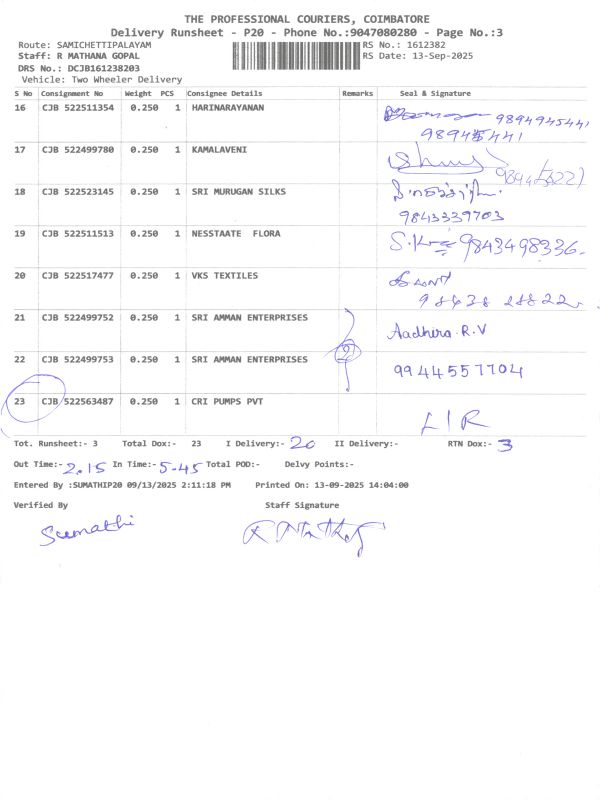 THE PROFESSIONAL COURIERS, COIMBATORE
Delivery Runsheet - P20 - Phone No.:9047080280 - Page No.:3
Route: SAMICHETTIPALAYAM RS No.: 1612382
Staff: R MATHANA GOPAL RS Date: 13-Sep-2025
DRS No.: DCJB161238203
Vehicle: Two Wheeler Delivery
S No Consignment No Weight PCS Consignee Details Remarks Seal & Signature
16 CJB 522511354 0.250 1 HARINARAYANAN 9894945441
989445441
17 CJB 522499780 0.250 1 KAMALAVENI
18 CJB 522523145 0.250 1 SRI MURUGAN SILKS
9843339703
19 CJB 522511513 0.250 1 NESSTAATE FLORA 9843498336
20 CJB 522517477 0.250 1 VKS TEXTILES
98438 28822
21 CJB 522499752 0.250 1 SRI AMMAN ENTERPRISES Aadhera. R.V
22 CJB 522499753 0.250 1 SRI AMMAN ENTERPRISES 2 9944557704
23 CJB 522563487 0.250 1 CRI PUMPS PVT L/R
Tot. Runsheet:- 3 Total Dox:- 23 I Delivery:- 20 II Delivery:- RTN Dox:- 3
Out Time:- 2.15 In Time:- 5-45 Total POD:- Delvy Points:-
Entered By :SUMATHIP20 09/13/2025 2:11:18 PM Printed On: 13-09-2025 14:04:00
Verified By Staff Signature
Sumathi